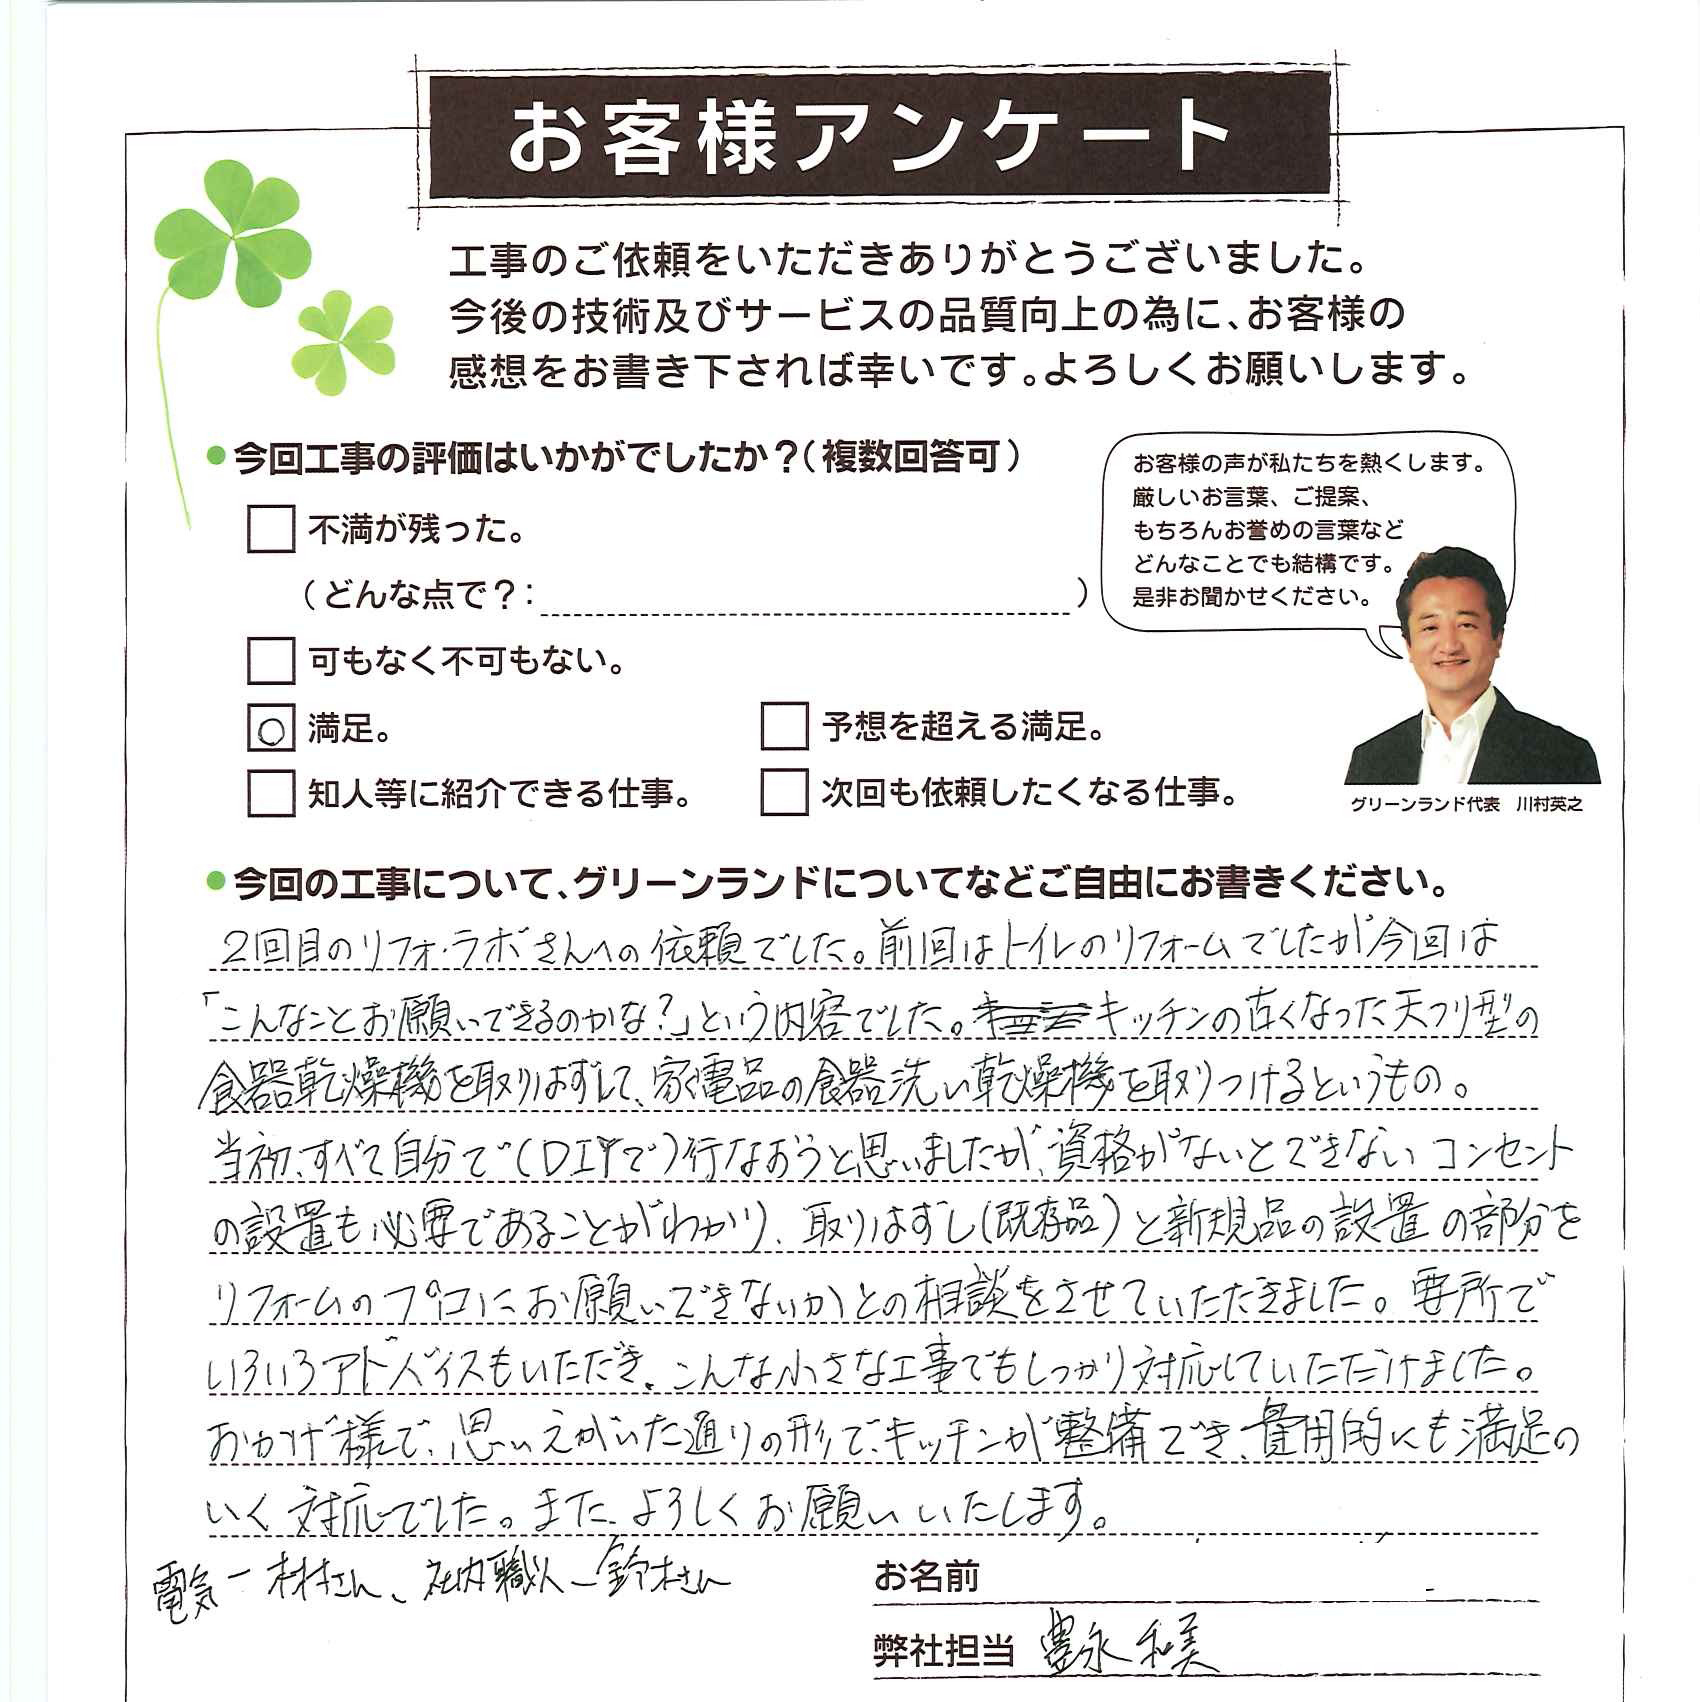 お客様アンケート
工事のご依頼をいただきありがとうございました。
今後の技術及びサービスの品質向上の為に、お客様の
感想をお書き下されば幸いです。よろしくお願いします。
●今回工事の評価はいかがでしたか？（複数回答可）
不満が残った。
（どんな点で？：　）
可もなく不可もない。
○ 満足。
予想を超える満足。
知人等に紹介できる仕事。
次回も依頼したくなる仕事。
お客様の声が私たちを熱くします。
厳しいお言葉、ご提案、
もちろんお誉めの言葉など
どんなことでも結構です。
是非お聞かせください。
グリーンランド代表　川村英之
●今回の工事について、グリーンランドについてなどご自由にお書きください。
2回目のリフォ・ラボさんへの依頼でした。前回はトイレのリフォームでしたが今回は
「こんなことお願いできるのかな?」という内容でした。キッチンの古くなった天フリ型の
食器乾燥機を取りはずして、家電品の食器洗い乾燥機を取りつけるというもの。
当初、すべて自分で(DIYで)行なおうと思いましたが、資格がないとできないコンセント
の設置も必要であることがわかり、取りはずし(既存品)と新規品の設置の部分を
リフォームのプロにお願いできないかとの相談をさせていただきました。要所で
いろいろアドバイスもいただき、こんな小さな工事でもしっかり対応していただけました。
おかげ様で、思いえがいた通りの形で、キッチンが整備でき、費用的にも満足の
いく対応でした。また、よろしくお願いいたします。
電気ー木村さん、社内職人ー鈴木さん
お名前
弊社担当　豊永 和美